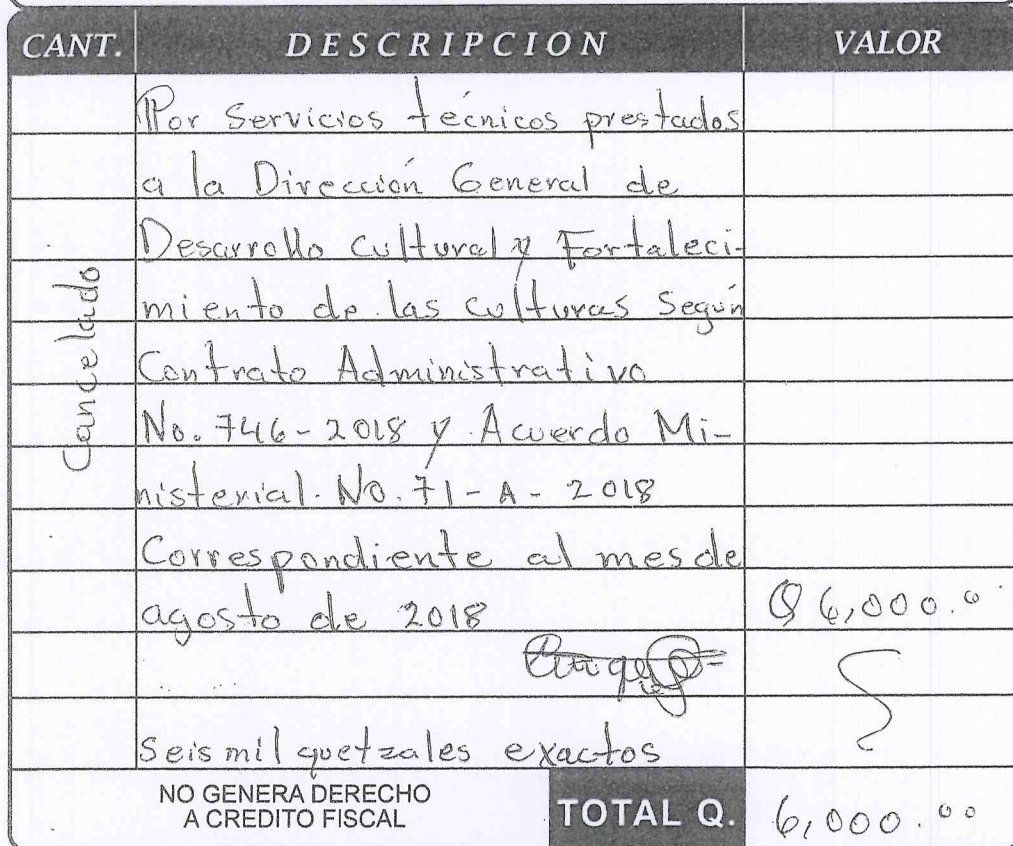 CANT. DESCRIPCION VALOR
Por Servicios técnicos prestados
a la Dirección General de
Desarrollo Cultural y Fortaleci-
miento de las culturas Según
Contrato Administrativo
No. 746-2018 y Acuerdo Mi-
nisterial. No. 71-A-2018
Correspondiente al mes de
agosto de 2018 Q 6,000.00
Seis mil quetzales exactos
Cancelado
NO GENERA DERECHO
A CREDITO FISCAL
TOTAL Q. 6,000.00